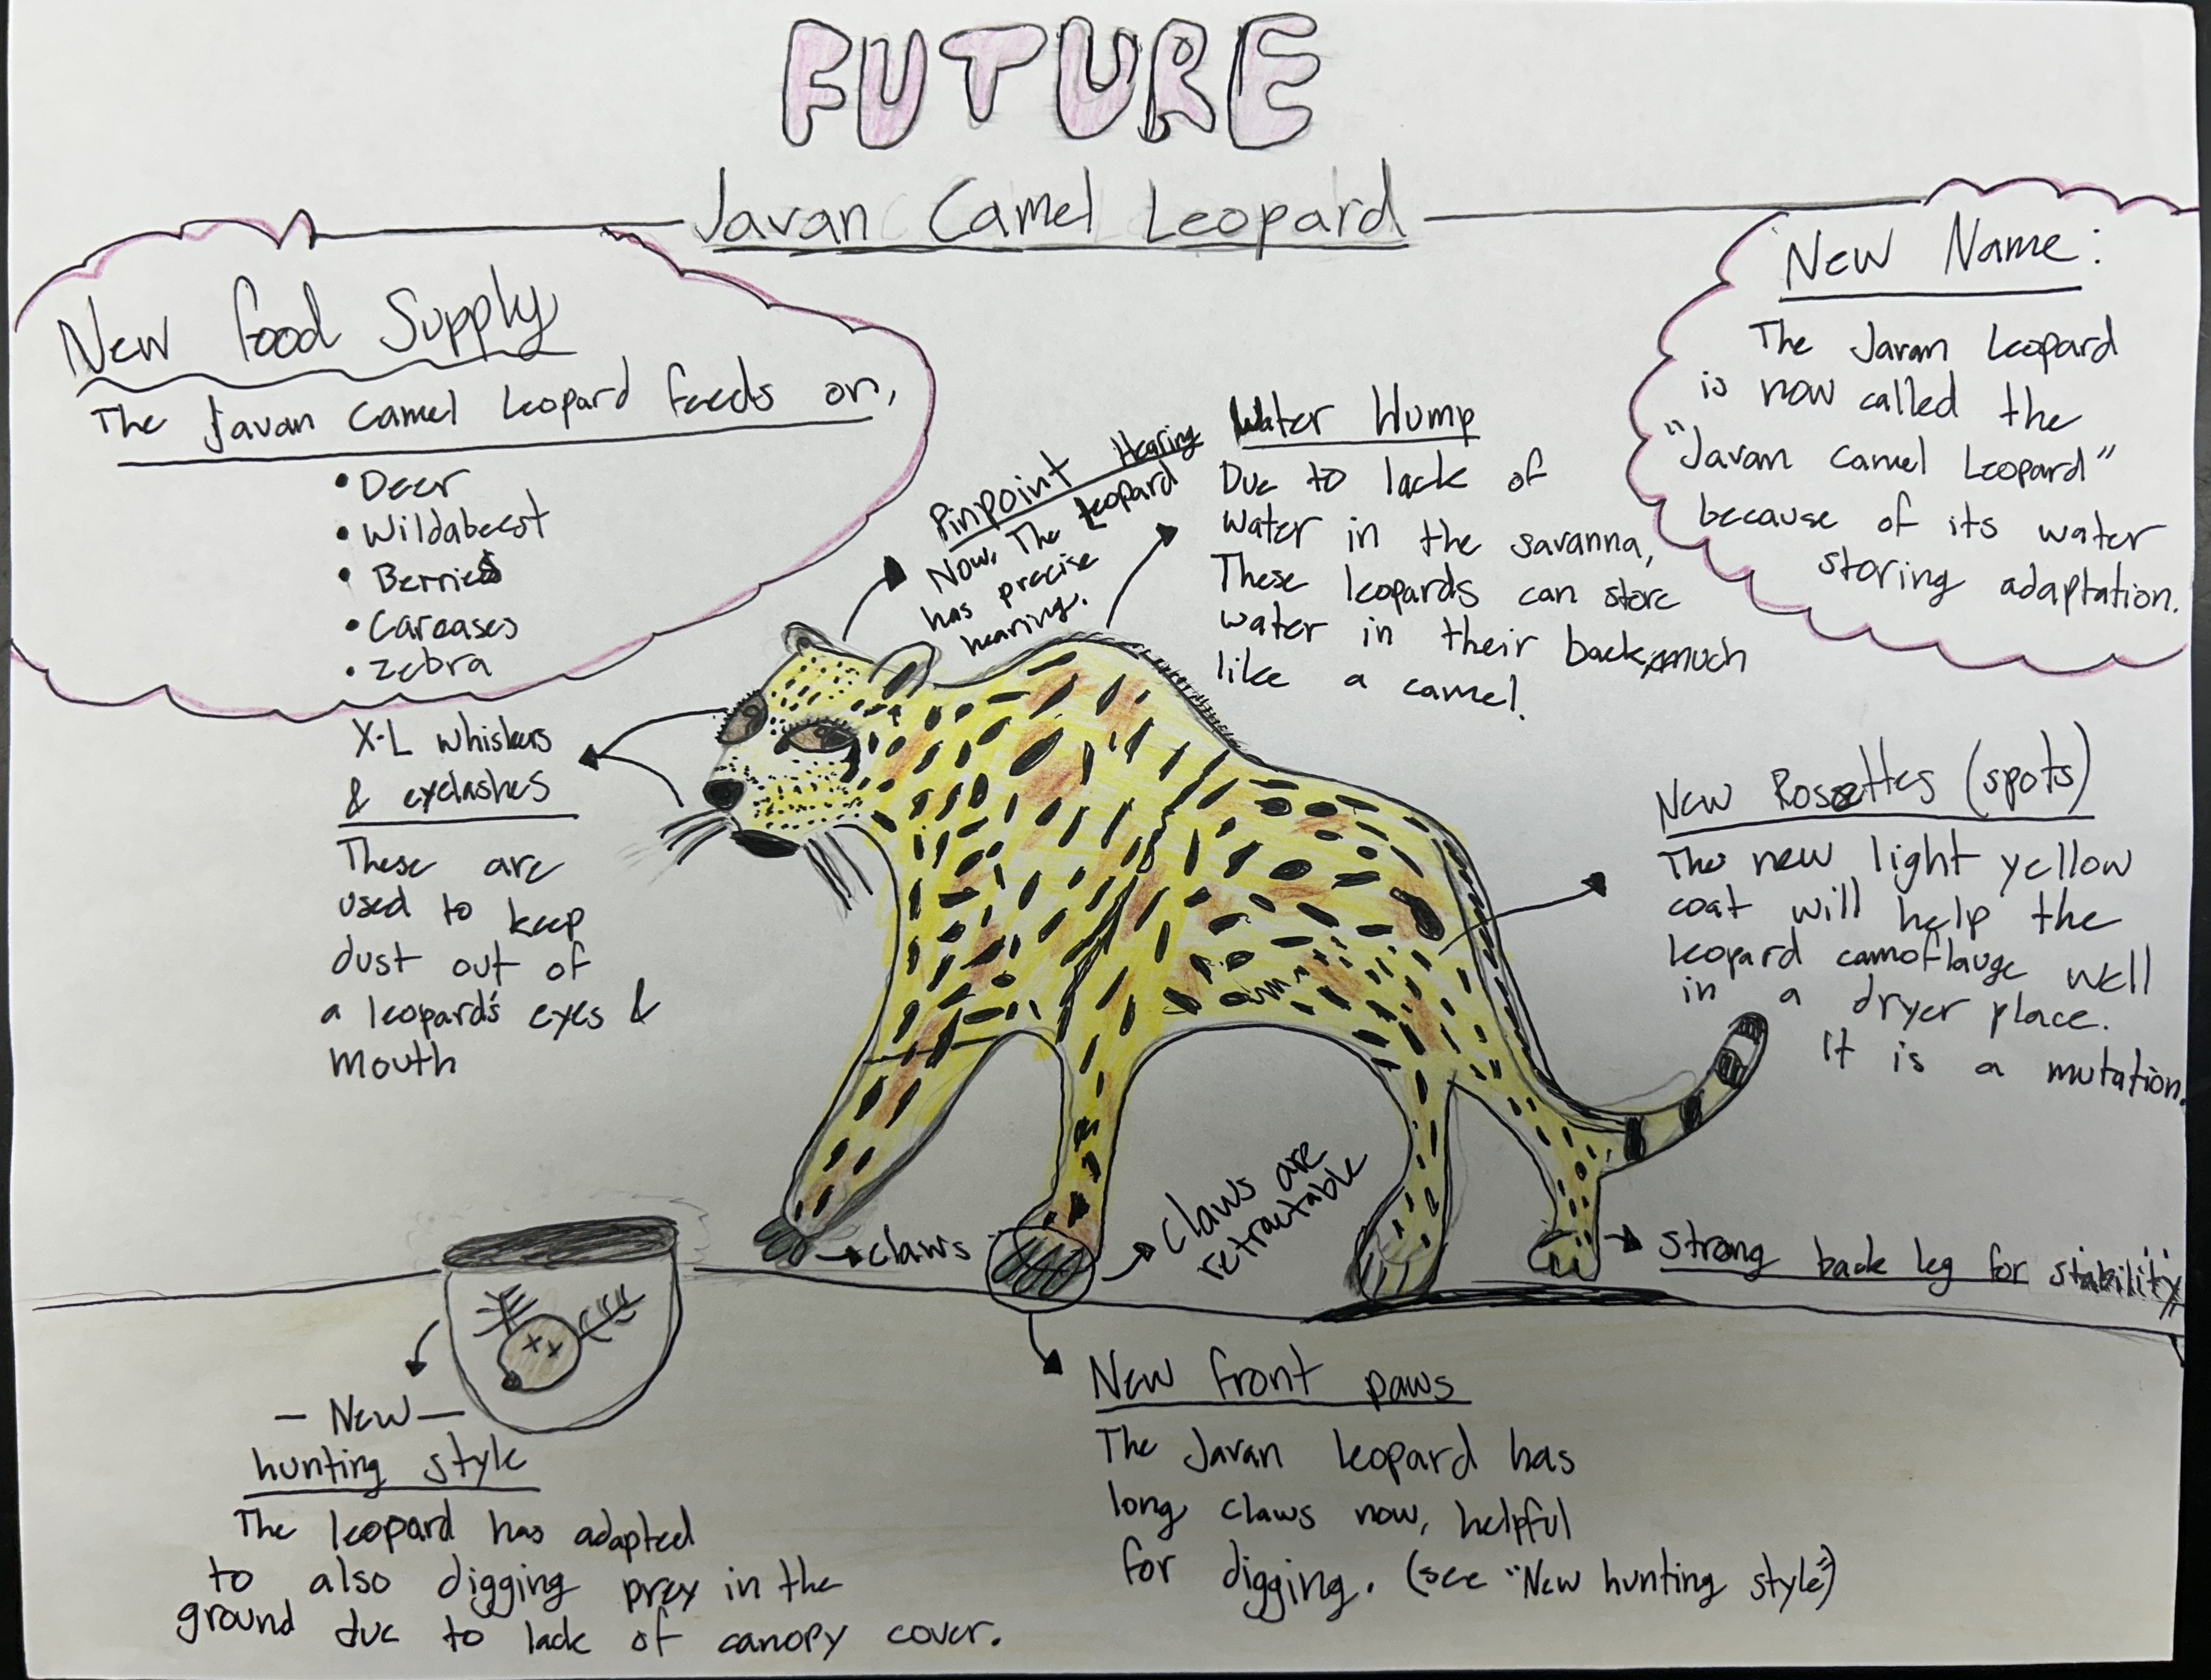 FUTURE
Javan Camel Leopard
New Food Supply
The Javan Camel Leopard feeds on,
• Deer
• Wildabeest
• Berries
• Carcases
• Zebra
Pinpoint Hearing
Now, The Leopard
has precise
hearing.
Water Hump
Due to lack of
water in the savanna,
These leopards can store
water in their back, much
like a camel.
New Name:
The Javan Leopard
is now called the
"Javan Camel Leopard"
because of its water
storing adaptation.
X-L whiskers
& eyelashes
These are
used to keep
dust out of
a leopard's eyes &
mouth
New Rosettes (spots)
The new light yellow
coat will help the
leopard camoflauge well
in a dryer place.
It is a mutation.
claws
claws are
retractable
strong back leg for stability
- New -
hunting style
The leopard has adapted
to also digging prey in the
ground due to lack of canopy cover.
New front paws
The Javan leopard has
long claws now, helpful
for digging. (see "New hunting style")